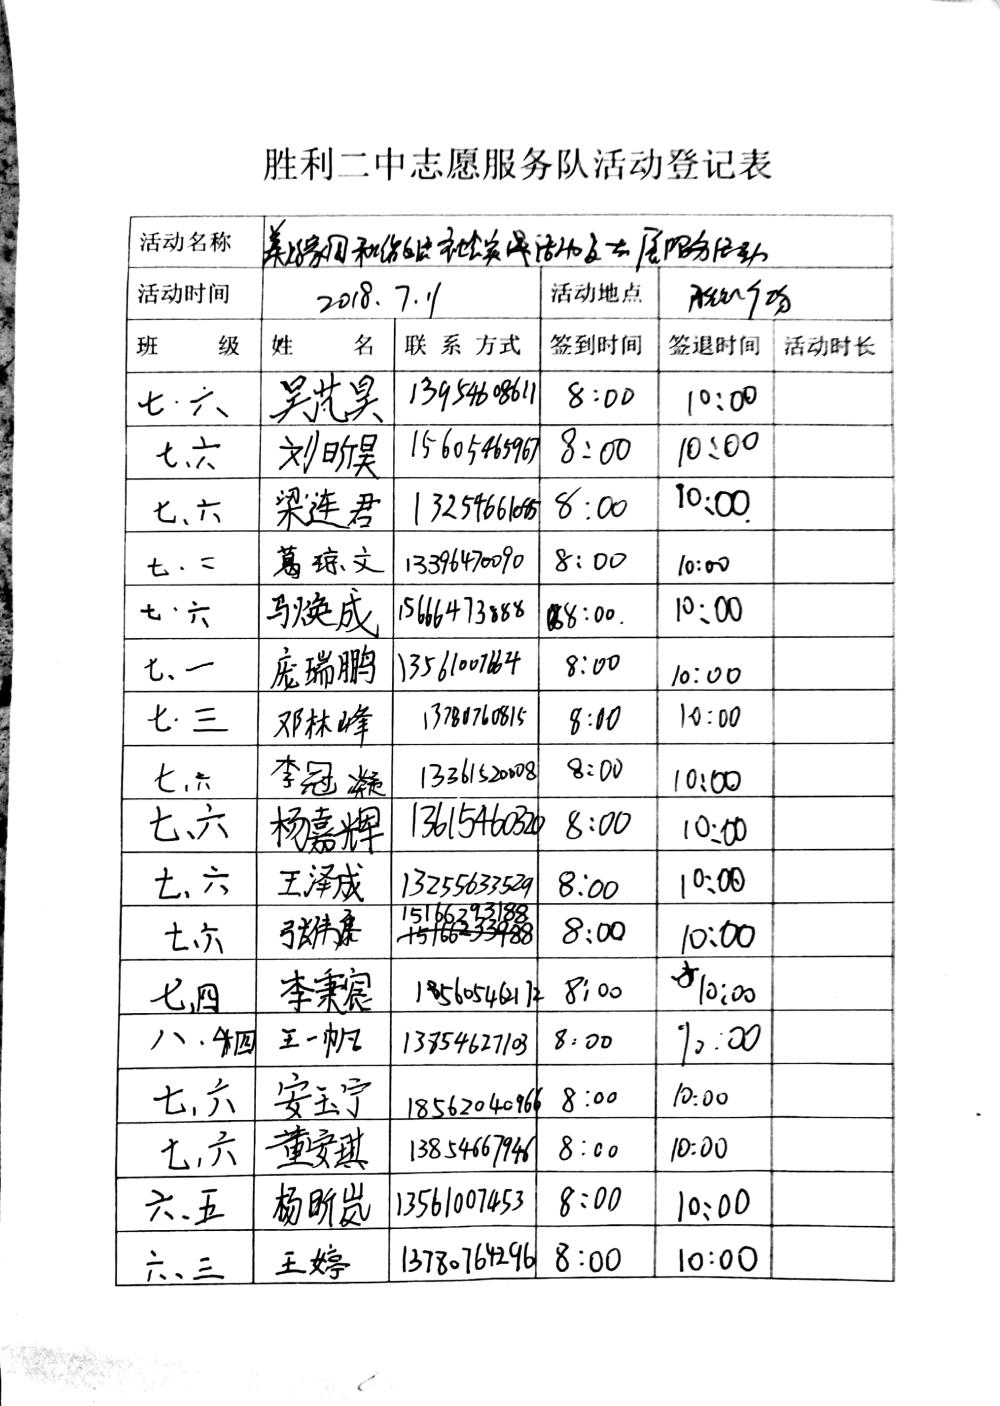 胜利二中志愿服务队活动登记表
活动名称 美丽家园和你的 社会实践活动 服务活动
活动时间 2018.7.11 活动地点 广场
班 级 姓 名 联 系 方式 签到时间 签退时间 活动时长
七.六 吴芃昊 13954608611 8:00 10:00
七、六 刘昕昊 15605465967 8:00 10:00
七、六 梁连君 13254661085 8:00 10:00
七.二 葛琼文 13396470090 8:00 10:00
七.六 马焕成 15666473888 8:00. 10:00
七、一 庞瑞鹏 13561007664 8:00 10:00
七.三 邓林峰 13780760815 8:00 10:00
七、六 李冠凝 13361520008 8:00 10:00
七、六 杨嘉辉 13615460320 8:00 10:00
七、六 王泽成 13255633529 8:00 10:00
七、六 张伟康 15166293188 8:00 10:00
七、四 李秉宸 18560546172 8:00 10:00
八.四 王一帆 13854627103 8:00 10:00
七、六 安玉宁 18562040966 8:00 10:00
七、六 董安琪 13854667946 8:00 10:00
六、五 杨昕岚 13561007453 8:00 10:00
六、三 王婷 13780764296 8:00 10:00